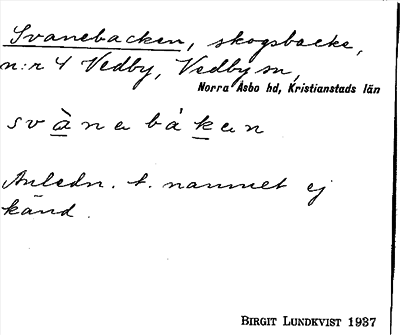 Svanebacken, skogsbacke,
n:r 4 Vedby, Vedby sn,
Norra Åsbo hd, Kristianstads län
svànabákan
Anledn. t. namnet ej
känd.
BIRGIT LUNDKVIST 1937